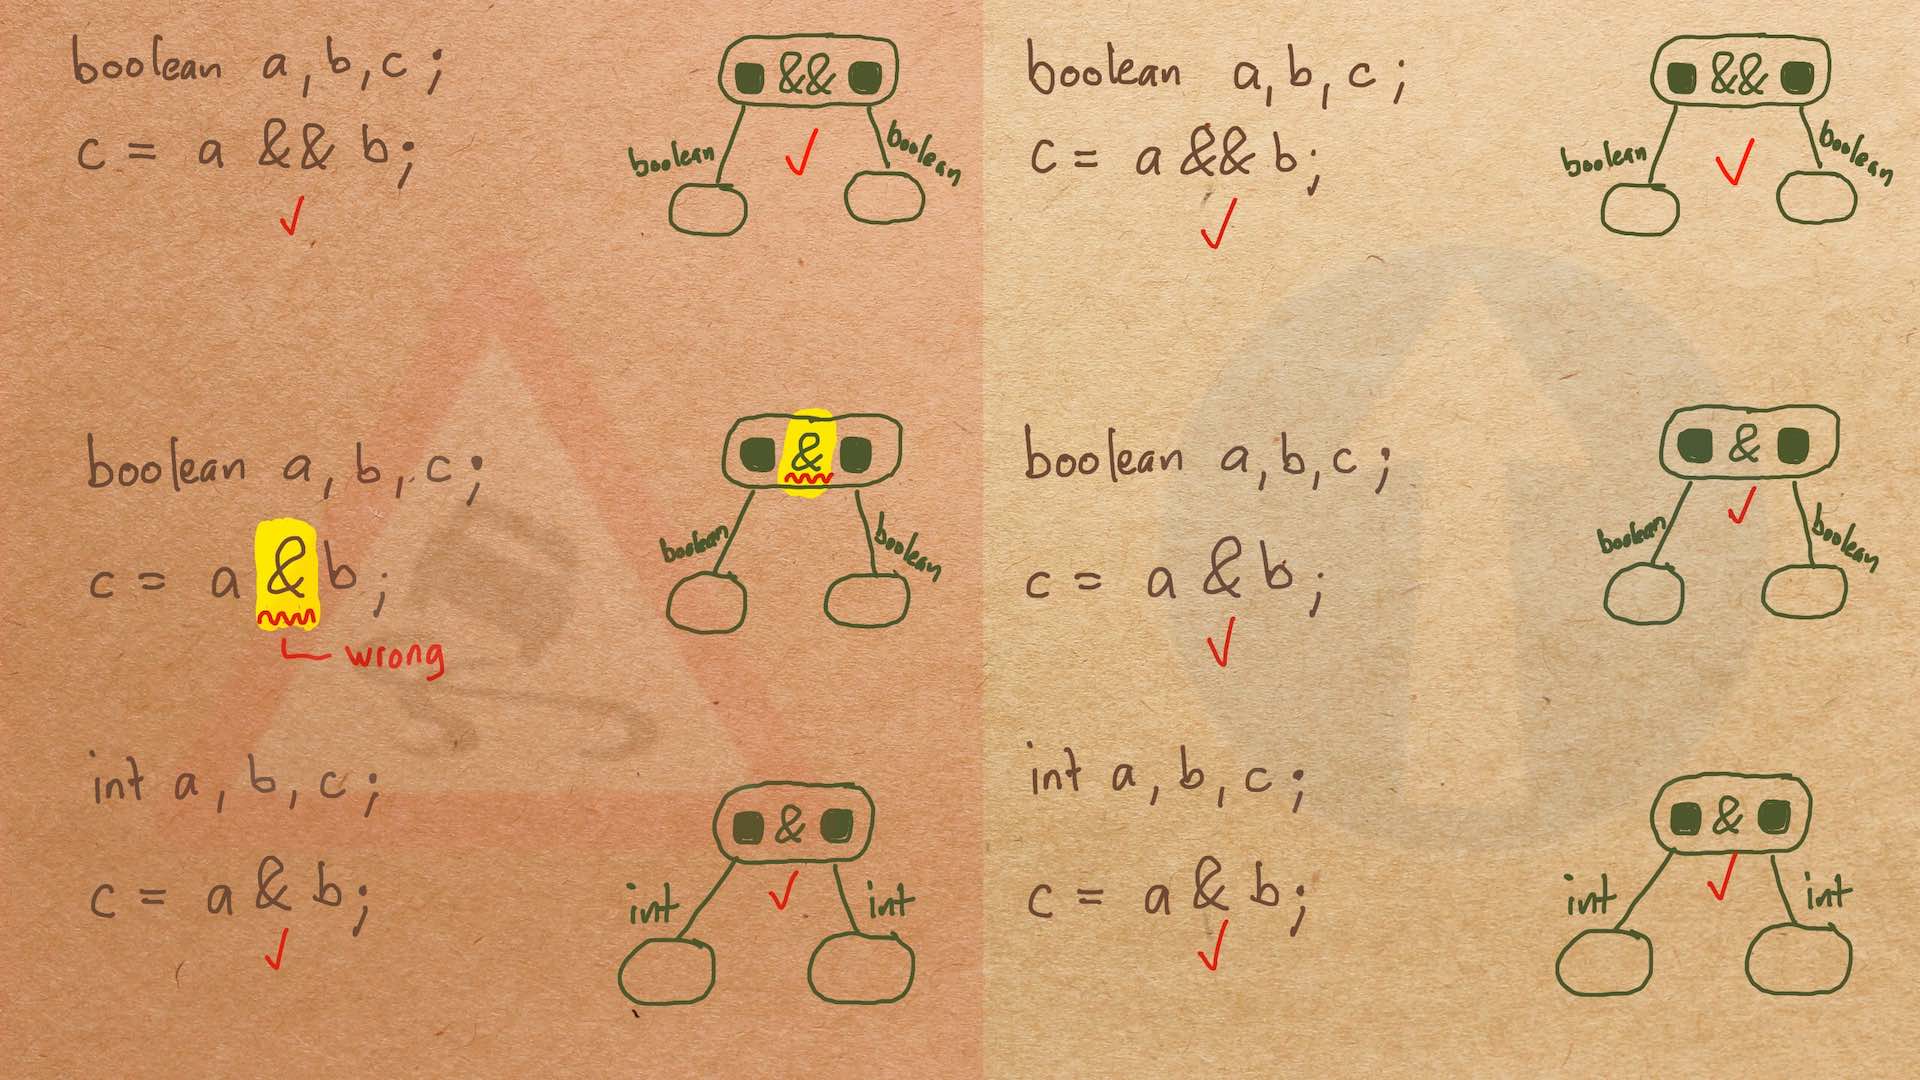 boolean a, b, c;
c = a && b;
&&
boolean
boolean
boolean a, b, c;
c = a & b;
wrong
&
boolean
boolean
int a, b, c;
c = a & b;
&
int
int
boolean a, b, c;
c = a && b;
&&
boolean
boolean
boolean a, b, c;
c = a & b;
&
boolean
boolean
int a, b, c;
c = a & b;
&
int
int